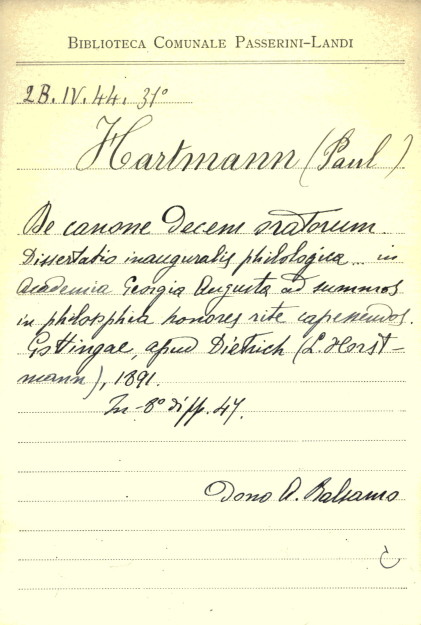 BIBLIOTECA COMUNALE PASSERINI-LANDI
2B. IV. 44. 31°
Hartmann (Paul)
De canone decem oratorum.
Dissertatio inauguralis philologica ... in
Academia Georgia Augusta ad summos
in philosophia honores rite capessendos.
Gottingae, apud Dietrich (L. Horst-
mann), 1891.
In-8° di pp. 47.
Dono A. Balsamo